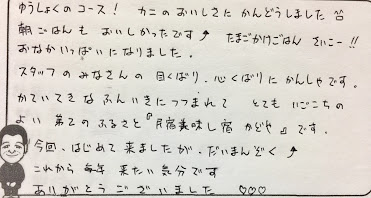 ゆうしょくのコース！ カニのおいしさにかんどうしました
朝ごはんも おいしかったです♪ たまごかけごはん さいこー！！
おなかいっぱいになりました。
スタッフのみなさんの 目くばり、心くばりにかんしゃです。
かていてきな ふんいきにつつまれて とても いごこちの
よい 第2の ふるさと『 美味し宿 かどや 』です。
今回、はじめて 来ましたが、だいまんぞく♪
これから 毎年 来たい 気分です
ありがとうございました ♡♡♡